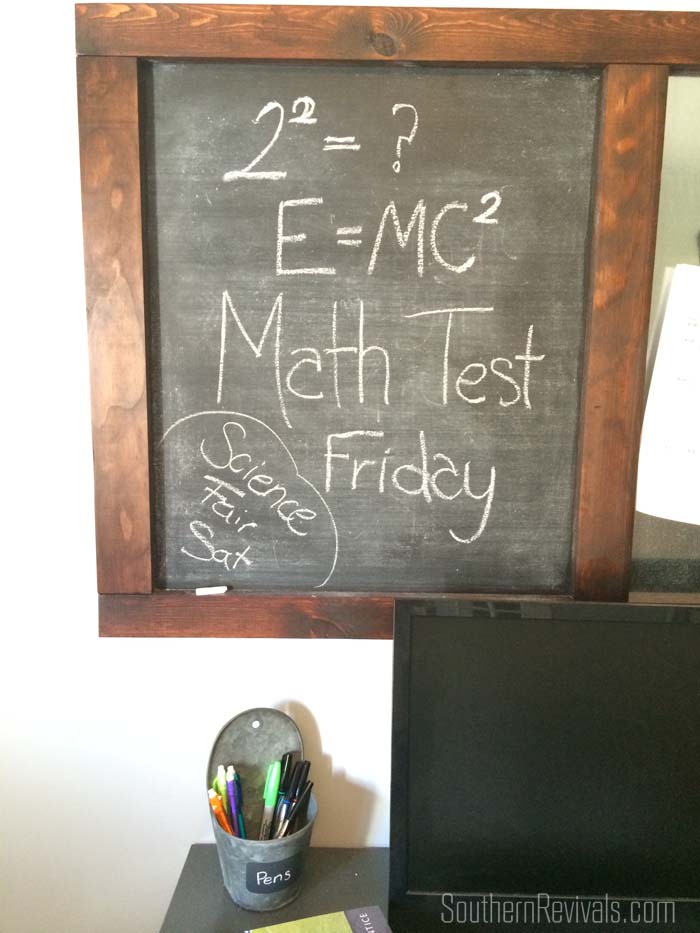 2² = ?
E=MC²
Math Test
Friday
Science
Fair
Sat
Pens
SouthernRevivals.com